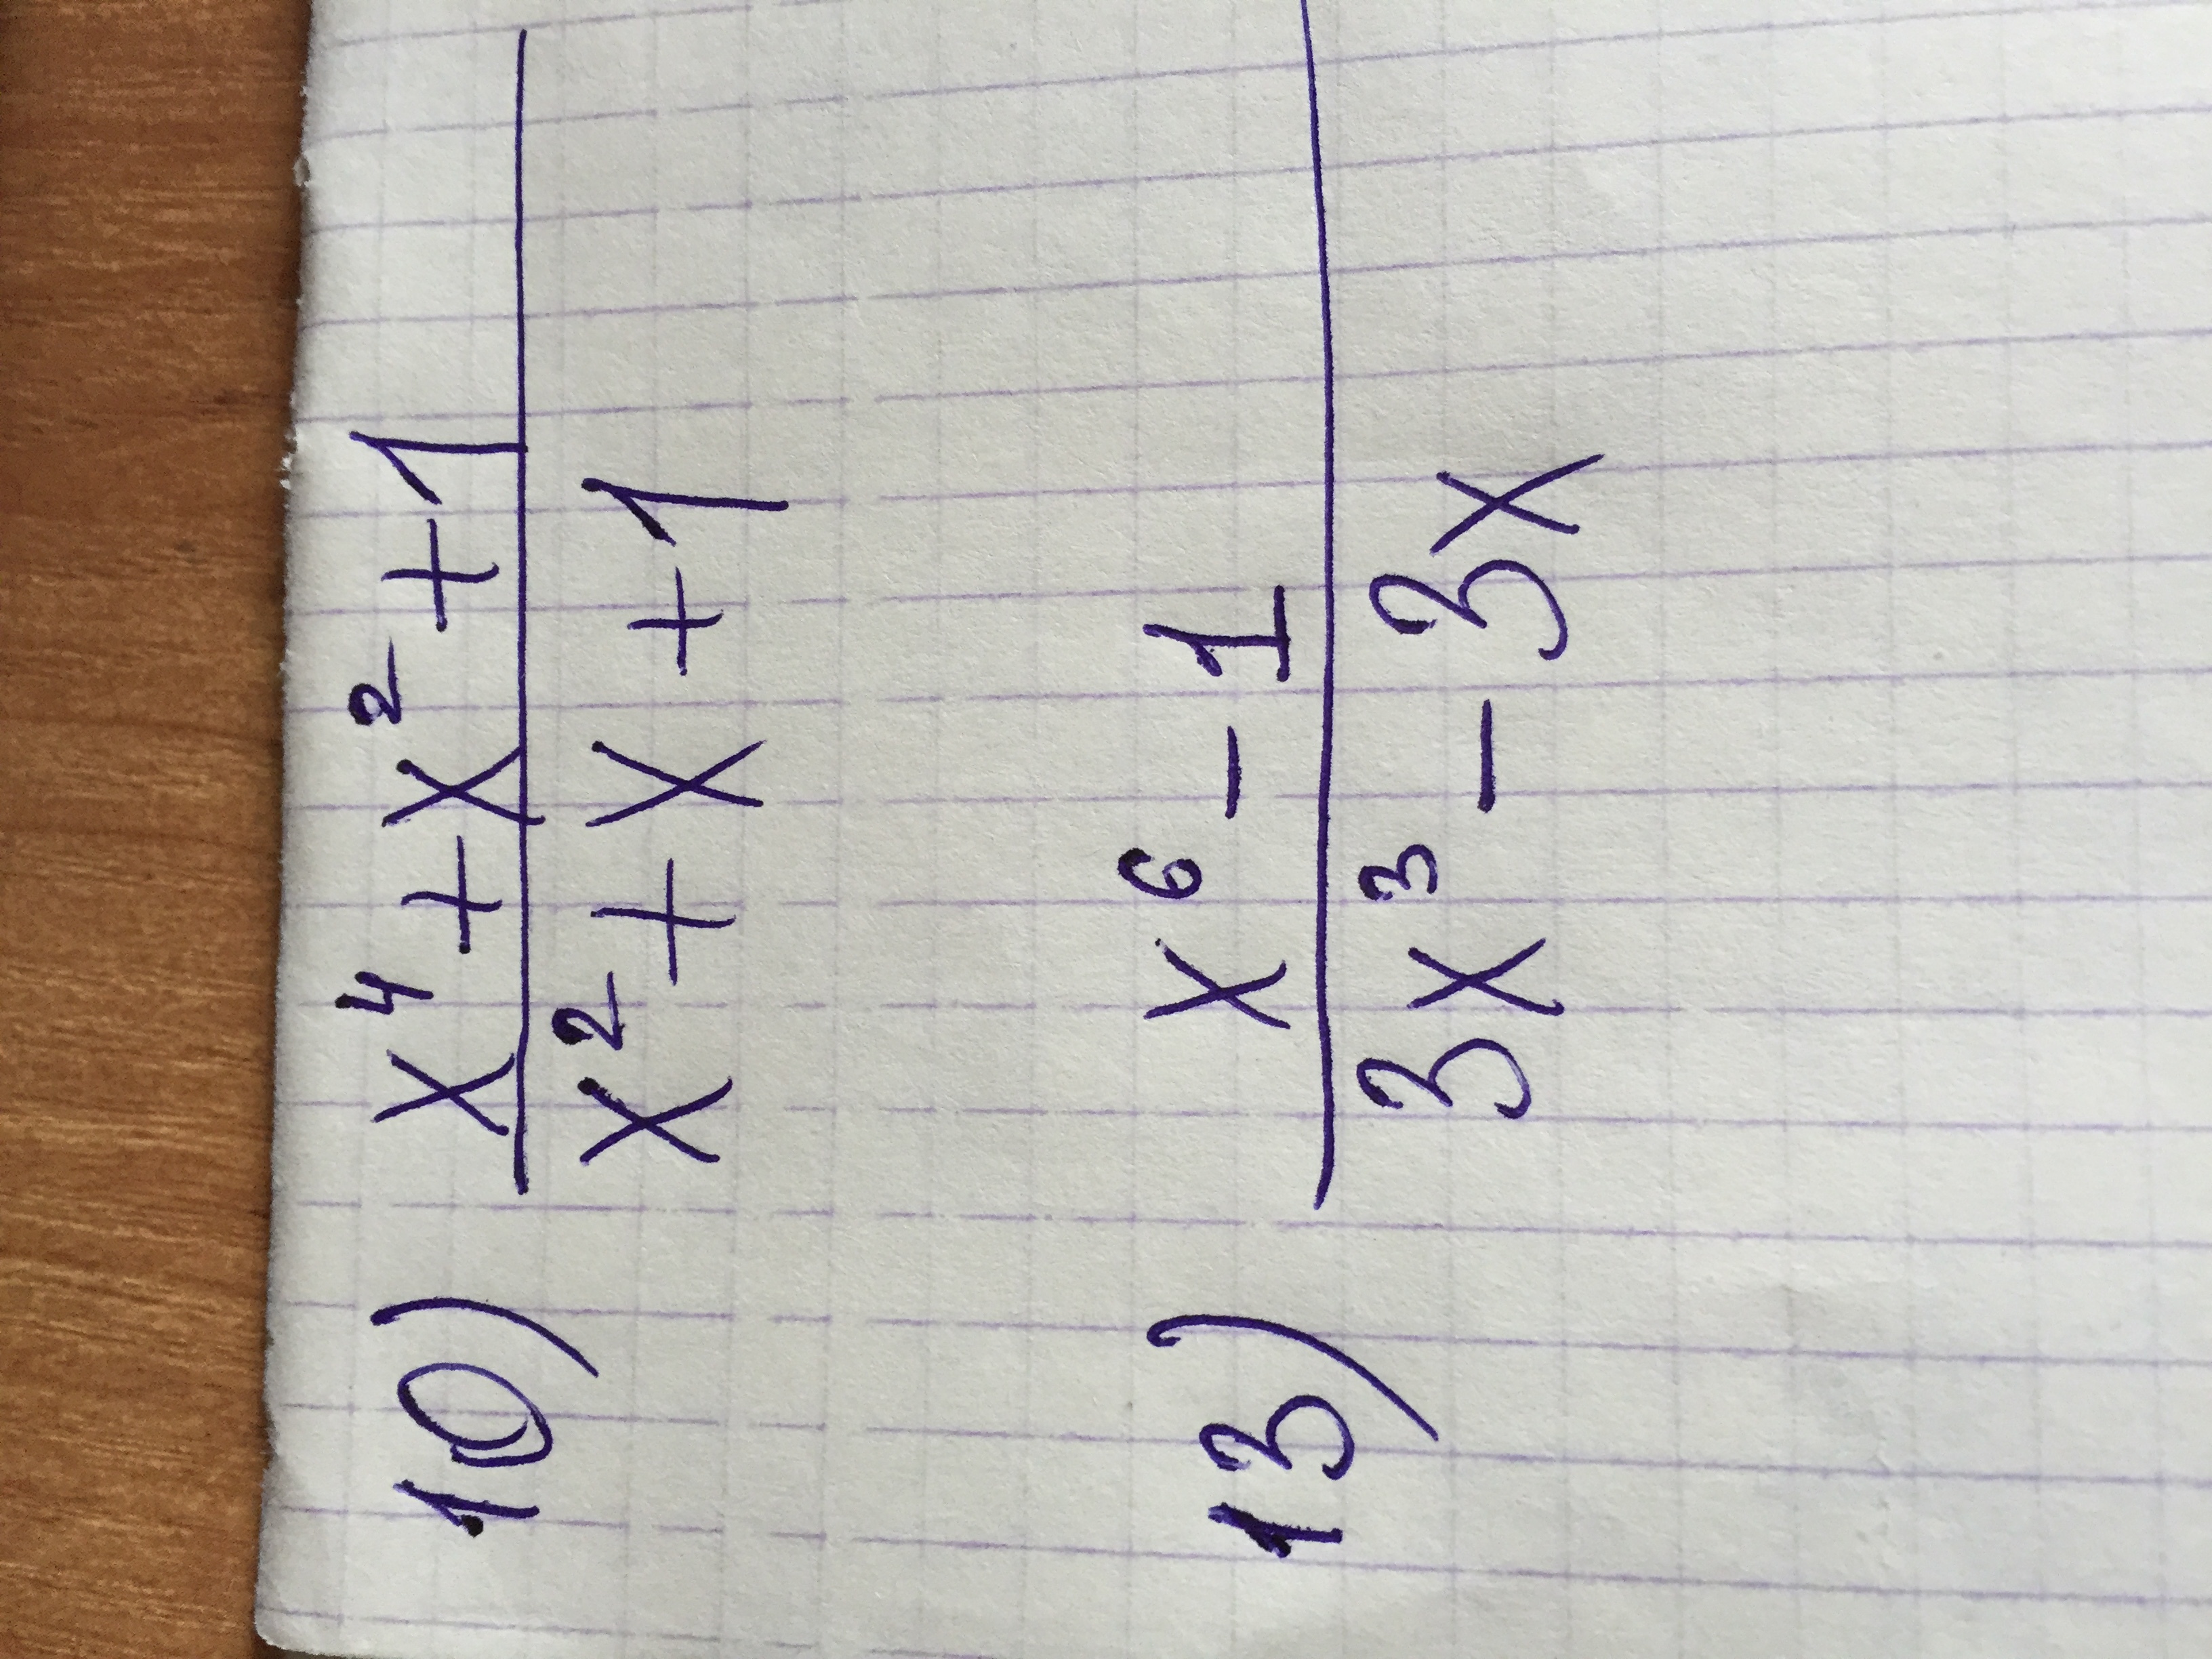 10) x⁴ + x² + 1
x² + x + 1
13) x⁶ - 1
3x³ - 3x